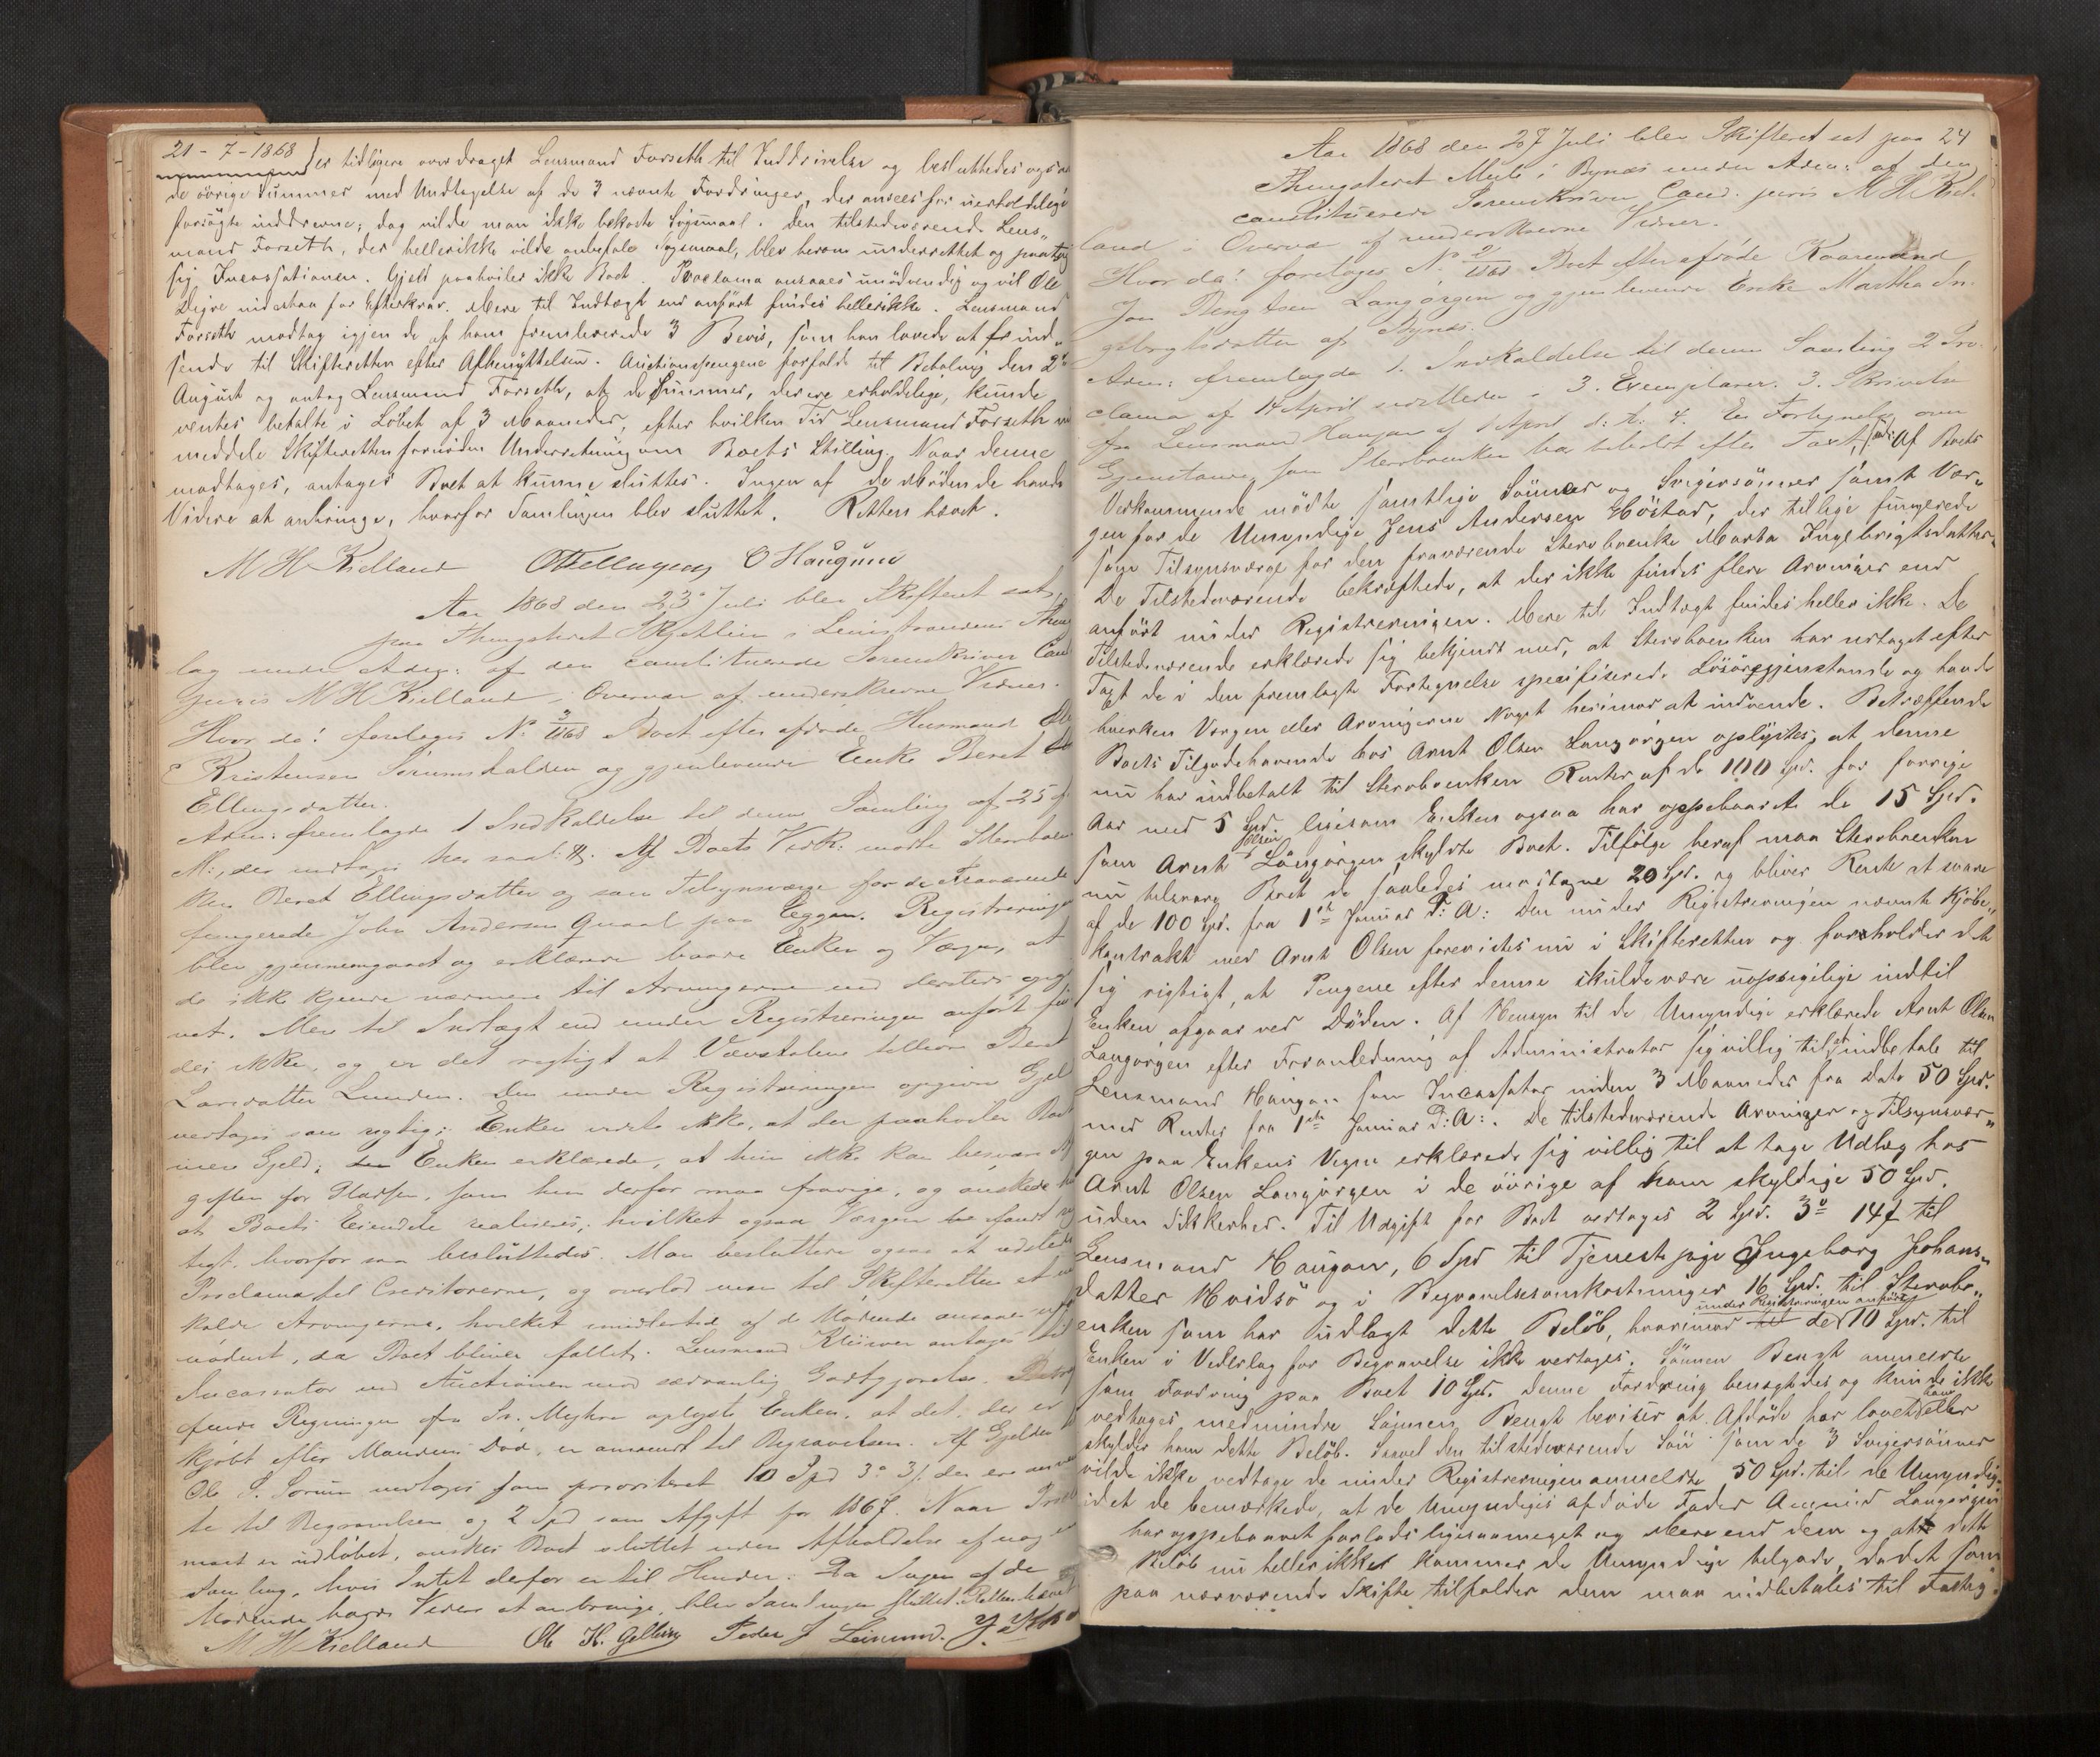 21-7-1868
er tidligere overdraget Lensmand Forseth til Inddrivelse og besluttedes ogsaa
de övrige Summer med Undtagelse af de 3 nævnte Fordringer, der ansees for uerholdelige
forsögte inddrevne; dog vilde man ikke bekoste Sögsmaal. Den tilstedeværende Lens-
mand Forseth, der hellerikke vilde anbefale Sogsmaal, blev herom underrettet og paatog
sig Incassationen. Gjeld paahviler ikke Boet. Proclama ansaaes unödvendig og vil Ole
Digre indestaa for Efterkrav. Mere til Indtægt end anfört findes hellerikke. Lensmand
Forseth modtog igjen de af ham fremleverede 3 Bevis, som han lovede at ind-
sende til Skifteretten efter Afbenyttelsen. Auctionspengene forfaldt til Betaling den 2den
August og antog Lensmand Forseth, at de Summer, der ere erholdelige, kunde
ventes betalte i Löbet af 3 Maaneder, efter hvilken Tid Lensmand Forseth vil
meddele Skifteretten fornöden Underretning om Boets Stilling. Naar denne
modtages, antages Boet at kunne sluttes. Ingen af de Mödende havde
Videre at anbringe, hvorfor Samlingen blev sluttet. Retten hævet.
M H Kielland O Haugum
Aar 1868 den 23de Juli blev Skifteret sat
paa Thingstedet Skjetlein i Leinstrandens Thing-
lag under Adm: af den constituerede Sorenskriver Cand
juris M H Kielland i Overvær af underskrevne Vidner.
Hvor da! foretoges No 3/1868 Boet efter afdöde Husmand Ole
Kristensen Sörumshalden og gjenlevende Enke Beret
Ellingsdatter.
Adm: fremlagde 1 Indkaldelse til denne Samling af 25 f.
M:, der indtages her saal: #. Af Boets Vedk: mödte Stervboen-
ken Beret Ellingsdatter og som Tilsynsværge for de Fraværende
fungerede John Andersen Qvaal paa Eggen. Registreringen
blev gjennemgaaet og erklærede baade Enken og Værgen, at
de ikke kjende nærmere til Arvingerne end dersteds opgi-
vet. Mere til Indtægt end under Registreringen anfört fin-
des ikke, og er det rigtigt at Vævstolen tilhörer Beret
Larsdatter Lunden. Den under Registreringen opgivne Gjeld
vedtages som rigtig; Enken vidste ikke, at der paahviler Boet
mere Gjeld; Enken erklærede, at hun ikke kan besvare Af-
giften for Pladsen, som hun derfor maa fravige, og önskede
at Boets Eiendele realiseres; hvilket ogsaa Værgen fandt rig-
tigt, hvorfor saa besluttedes. Man besluttede ogsaa at udstede
Proclama til Creditorerne, og overlod man til Skifteretten at ind-
kalde Arvingerne, hvilket imidlertid af de Mödende ansaaes
nödent, da Boet bliver fallit. Lensmand Klüwer antages til
Incassator ved Auctionen mod sædvanlig Godtgjörelse. Betræf-
fende Regningen fra Sr. Myhre oplyste Enken, at det, der er
kjöbt efter Mandens Död, er anvendt til Begravelsen. Af Gjelden til
Ole S. Sörum vedtages som prioriteret 10 Spd 3o 3 s. der ere anvend-
te til Begravelsen og 2 Spd som Afgift for 1867. Naar Procla-
maet er udlöbet, önskes Boet sluttet uden Afholdelse af nogen
Samling, hvis Intet derfor er til Hinder. Da Ingen af de
Mödende havde Videre at anbringe, blev Samlingen sluttet. Retten hævet
M H Kielland Ole H. Gelling Peder J Leinum.
24
Aar 1868 den 27 Juli blev Skifteret sat paa
Thingstedet Mule i Bynæs under Adm: af den
constituerede Sorenskriver Cand: juris M H Kiel-
land i Overvær af underskrevne Vidner.
Hvor da! foretoges No 2/1868 Boet efter afdöde Kaarmand
Jon Bengtsen Langörgen og gjenlevende Enke Martha In-
gebrigtsdatter af Bynæs.
Adm: fremlagde 1. Indkaldelse til denne Samling 2 Pro-
clama af 14 April sidstleden i 3. Exemplarer. 3. Skrivelse
fra Lensmand Haugan af 1 April d: A: 4. En Fortegnelse over
Gjenstande, som Stervboenken har beholdt efter Taxt, Af Boets
Vedkommende mödte samtlige Sönner og Svigersönner samt Vær-
gen for de Umyndige Jens Andersen Höstad, der tillige fungerede
som Tilsynsværge for den fraværende Stervboenke Marta Ingebrigtsdatter.
De Tilstedeværende bekræftede, at der ikke findes flere Arvinger end
anfört under Registreringen. Mere til Indtægt findes heller ikke. De
Tilstedeværende erklærede sig bekjendt med, at Stervboenken har udtaget efter
Taxt de i den fremlagte Fortegnelse specificerede Lösöregjenstande og havde
hverken Værgen eller Arvingerne Noget herimod at indvende. Betræffende
Boets Tilgodehavende hos Arnt Olsen Langörgen oplystes, at denne
nu har indbetalt til Stervboenken Renter af de 100 Spd. for forrige
Aar med 5 Spd. ligesom Enken ogsaa har oppebaaret de 15 Spd.
som Arnt Olsen Langörgen skyldte Boet. Tilfölge heraf maa Stervboenken
nu tilsvare Boet de saaledes modtagne 20 Spd. og bliver Rente at svare
af de 100 Spd. fra 1ste Januar d: A: Den under Registreringen nævnte Kjöbe-
kontrakt med Arnt Olsen forevistes nu i Skifteretten og forholder det
sig rigtigt, at Pengene efter denne skulde være uopsigelige indtil
Enken afgaar ved Döden. Af Hensyn til de Umyndige erklærede Arnt Olsen
Langörgen efter Foranledning af Administrator sig villig til at indbetale til
Lensmand Haugan som Incassator inden 3 Maaneder fra Dato 50 Spd.
med Renter fra 1ste Januar d: A:. De tilstedeværende Arvinger og Tilsynsvær-
gen paa Enkens Vegne erklærede sig villig til at tage Udlæg hos
Arnt Olsen Langörgen i de övrige af ham skyldige 50 Spd.
uden Sikkerhed. Til Udgift for Boet vedtages 2 Spd. 3o 14 s til
Lensmand Haugan, 6 Spd til Tjenestepige Ingeborg Johans-
datter Hvidsö og i Begravelsesomkostninger 16 Spd. til Stervbo-
enken som har udlagt dette Belöb, hvorimod de under Registreringen anförte 10 Spd. til
Enken i Vederlag for Begravelse ikke vedtages. Sönnen Bengt anmeldte
som Fordring paa Boet 10 Spd. denne Fordring benægtedes og kunde ikke
vedtages, medmindre Sönnen Bengt beviser at Afdöde har lovet ham eller
skylder ham dette Belöb. Saavel den tilstedeværende Sön som de 3 Svigersönner
vilde ikke vedtage de under Registreringen anmeldte 50 Spd. til de Umyndige
idet de bemærkede, at de Umyndiges afdöde Fader Langörgen
har oppebaaret forlods ligesaameget og Mere end dem og at dette
Belöb nu heller ikke kommer de Umyndige tilgode, da det som
paa nærværende Skifte tilfalder dem maa indbetales til Fattig-